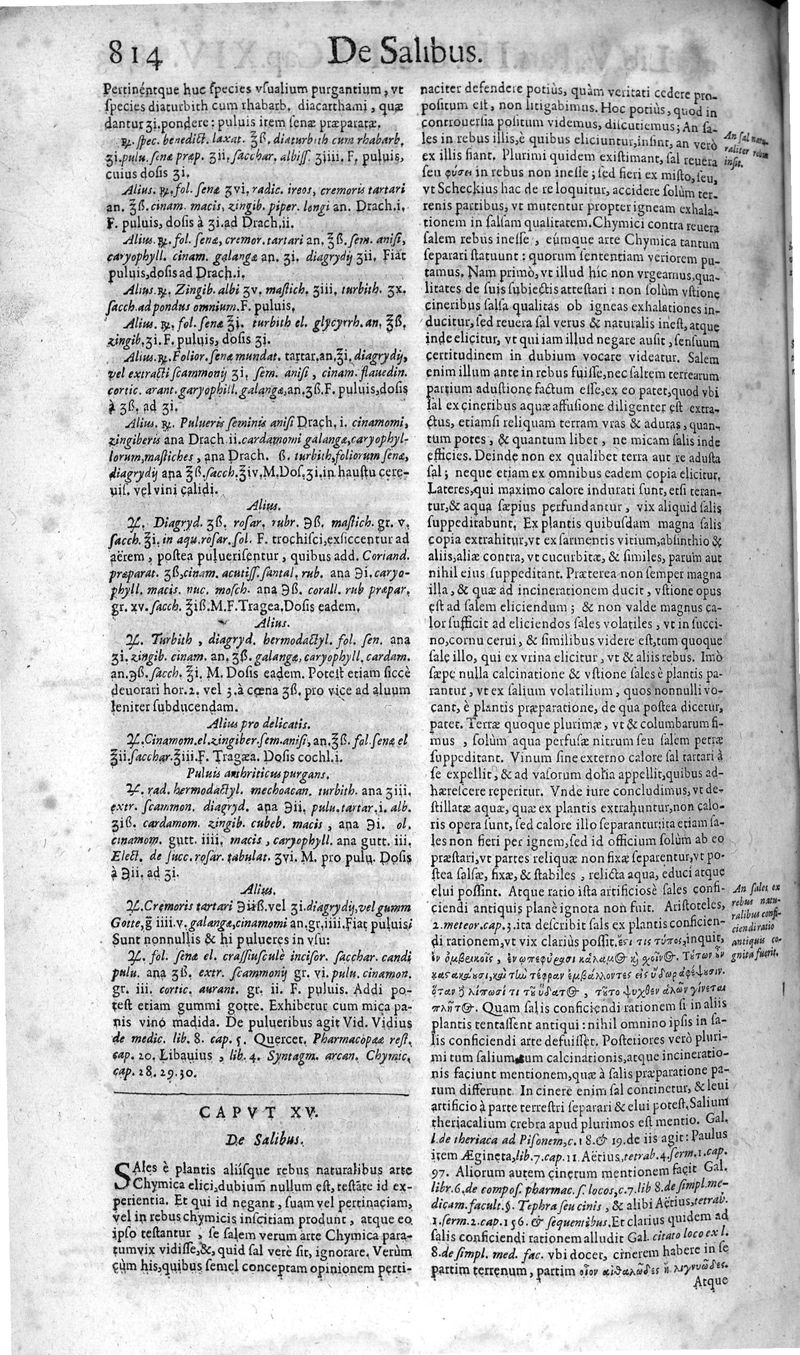 814 De Salibus.
Pertinéntque huc ſpecies vſualium purgantium, vt
ſpecies diaturbith cum rhabarb. diacarthami, quæ
dantur ʒi. pondere: puluis item ſenæ præparatæ.
℞. ſpec. benedict. laxat. ℥ß. diaturbith cum rhabarb.
ʒi. pulu. ſenæ præp. ʒii. ſacchar. albiſſ. ʒiiii. F. puluis,
cuius doſis ʒi.
Alius. ℞. fol. ſenæ ʒvi. radic. ireos, cremoris tartari
an. ℥ß. cinam. macis, zingib. piper. longi an. Drach. i.
F. puluis, doſis à ʒi. ad Drach. ii.
Alius. ℞. fol. ſenæ, cremor. tartari an. ℥ß. ſem. aniſi,
caryophyll. cinam. galangæ an. ʒi. diagrydij ʒii. Fiat
puluis, doſis ad Drach. i.
Alius. ℞. Zingib. albi ʒv. maſtich. ʒiii. turbith. ʒx.
ſacch. ad pondus omnium. F. puluis.
Alius. ℞. fol. ſenæ ℥i. turbith el. glycyrrh. an. ℥ß.
zingib. ʒi. F. puluis, doſis ʒi.
Alius. ℞. Folior. ſenæ mundat. tartar. an. ℥i. diagrydij,
vel extracti ſcammonij ʒi. ſem. aniſi, cinam. flauedin.
cortic. arant. garyophill. galangæ, an. ʒß. F. puluis, doſis
à ʒß. ad ʒi.
Alius. ℞. Pulueris ſeminis aniſi Drach. i. cinamomi,
zingiberis ana Drach. ii. cardamomi galangæ, caryophyl-
lorum, maſtiches, ana Drach. ß. turbith, foliorum ſenæ,
diagrydij ana ℥ß. ſacch. ℥iv. M. Doſ. ʒi. in hauſtu cere-
uiſ. vel vini calidi.
Alius.
℞. Diagryd. ʒß. roſar. rubr. ℈ß. maſtich. gr. v.
ſacch. ℥i. in aqu. roſar. ſol. F. trochiſci, exſiccentur ad
aërem, poſtea pulueriſentur, quibus add. Coriand.
præparat. ʒß. cinam. acutiſſ. ſantal. rub. ana ℈i. caryo-
phyll. macis. nuc. moſch. ana ℈ß. corall. rub præpar.
gr. xv. ſacch. ℥iß. M. F. Tragea. Doſis eadem.
Alius.
℞. Turbith, diagryd. hermodactyl. fol. ſen. ana
ʒi. zingib. cinam. an. ʒß. galangæ, caryophyll. cardam.
an. ℈ß. ſacch. ℥i. M. Doſis eadem. Poteſt etiam ſiccè
deuorari hor. 2. vel 3. à cœna ʒß. pro vice ad aluum
leniter ſubducendam.
Alius pro delicatis.
℞. Cinamom. el. zingiber. ſem. aniſi, an. ʒß. fol. ſenæ el
℥ii. ſacchar. ℥iii. F. Tragæa. Doſis cochl. i.
Puluis arthriticus purgans.
℞. rad. hermodactyl. mechoacan. turbith. ana ʒiii.
extr. ſcammon. diagryd. ana ℈ii. pulu. tartar. i. alb.
ʒiß. cardamom. zingib. cubeb. macis, ana ℈i. ol.
cinamom. gutt. iiii. macis, caryophyll. ana gutt. iii.
Elect. de ſucc. roſar. tabulat. ʒvi. M. pro pulu. Doſis
à ℈ii. ad ʒi.
Alius.
℞. Cremoris tartari ℈iß. vel ʒi. diagrydij, vel gumm
Gotte, g̃ iiii. v. galangæ, cinamomi an. gr. iiii. Fiat puluis.
Sunt nonnullis & hi pulueres in vſu:
℞. fol. ſenæ el. craſſiuſculè inciſor. ſacchar. candi
pulu. ana ʒß. extr. ſcammonij gr. vi. pulu. cinamon.
gr. iii. cortic. aurant. gr. ii. F. puluis. Addi po-
teſt etiam gummi gotte. Exhibetur cum mica pa-
nis vino madida. De pulueribus agit Vid. Vidius
de medic. lib. 8. cap. 5. Quercet. Pharmacopææ reſt.
cap. 20. Libauius, lib. 4. Syntagm. arcan. Chymic.
cap. 28. 29. 30.
CAPVT XV.
De Salibus.
SAles è plantis aliíſque rebus naturalibus arte
Chymica elici, dubium nullum eſt, teſtâte id ex-
perientia. Et qui id negant, ſuam vel pertinaciam,
vel in rebus chymicis inſcitiam produnt, atque eo
ipſo teſtantur, ſe ſalem verum arte Chymica para-
tum vix vidiſſe, &, quid ſal verè ſit, ignorare. Verùm
cùm his, quibus ſemel conceptam opinionem perti-
naciter defendere potiùs, quàm veritati cedere pro-
poſitum eſt, non litigabimus. Hoc potiùs, quod in
controuerſia poſitum videmus, diſcutiemus; An ſa-
les in rebus illis, è quibus eliciuntur, inſint, an verò
ex illis fiant. Plurimi quidem exiſtimant, ſal reuera
ſeu φύσει in rebus non ineſſe; ſed fieri ex miſto, ſeu,
vt Scheckius hac de re loquitur, accidere ſolùm ter-
renis partibus, vt mutentur propter igneam exhala-
tionem in ſalſam qualitatem. Chymici contra reuera
ſalem rebus ineſſe, eúmque arte Chymica tantum
ſeparari ſtatuunt: quorum ſententiam veriorem pu-
tamus. Nam primò, vt illud hîc non vrgeamus, qua-
litates de ſuis ſubiectis atteſtari: non ſolùm vſtione
cineribus ſalſa qualitas ob igneas exhalationes in-
ducitur, ſed reuera ſal verus & naturalis ineſt, atque
inde elicitur, vt qui iam illud negare auſit, ſenſuum
certitudinem in dubium vocare videatur. Salem
enim illum ante in rebus fuiſſe, nec ſaltem terrearum
partium aduſtione factum eſſe, ex eo patet, quod vbi
ſal ex cineribus aquæ affuſione diligenter eſt extra-
ctus, etiamſi reliquam terram vras & aduras, quan-
tum potes, & quantum libet, ne micam ſalis inde
efficies. Deinde non ex qualibet terra aut re aduſta
ſal; neque etiam ex omnibus eadem copia elicitur.
Lateres, qui maximo calore indurati ſunt, etſi teran-
tur, & aqua ſæpius perfundantur, vix aliquid ſalis
ſuppeditabunt. Ex plantis quibuſdam magna ſalis
copia extrahitur, vt ex ſarmentis vitium, abſinthio &
aliis, aliæ contra, vt cucurbitæ, & ſimiles, parum aut
nihil eius ſuppeditant. Præterea non ſemper magna
illa, & quæ ad incinerationem ducit, vſtione opus
eſt ad ſalem eliciendum; & non valde magnus ca-
lor ſufficit ad eliciendos ſales volatiles, vt in ſucci-
no, cornu cerui, & ſimilibus videre eſt, tum quoque
ſale illo, qui ex vrina elicitur, vt & aliis rebus. Imò
ſæpe nulla calcinatione & vſtione ſales è plantis pa-
rantur, vt ex ſalium volatilium, quos nonnulli vo-
cant, è plantis præparatione, de qua poſtea dicetur,
patet. Terræ quoque plurimæ, vt & columbarum fi-
mus, ſolùm aqua perfuſæ nitrum ſeu ſalem petræ
ſuppeditant. Vinum ſine externo calore ſal tartari à
ſe expellit, & ad vaſorum dolia appellit, quibus ad-
hæreſcere reperitur. Vnde iure concludimus, vt de-
ſtillatæ aquæ, quæ ex plantis extrahuntur, non calo-
ris opera ſunt, ſed calore illo ſeparantur: ita etiam ſa-
les non fieri per ignem, ſed id officium ſolùm ab eo
præſtari, vt partes reliquæ non fixæ ſeparentur, vt po-
ſtea ſalſæ, fixæ, & ſtabiles, relicta aqua, educi atque
elui poſſint. Atque ratio iſta artificiosè ſales confi-
ciendi antiquis planè ignota non fuit. Ariſtoteles,
2. meteor. cap. 3. ita deſcribit ſals ex plantis conficien-
di rationem, vt vix clariùs poſſit. ἔνι τις τόπος, inquit,
ἐν ὀμβρικοῖς, ἐν ᾧ πεφύκασι κάλαμοι καὶ χοῖνοι. Τούτων ἓν
κατακαίουσι, καὶ τὴν τέφραν ἐμβάλλοντες εἰς ὕδωρ ἀφέψουσιν.
ὅταν δὲ λίπωσί τι τοῦ ὕδατος, τοῦτο ψυχθὲν ἁλῶν γίνεται
πλῆθος. Quam ſalis conficiendi rationem ſi in aliis
plantis tentaſſent antiqui: nihil omnino ipſis in ſa-
lis conficiendi arte defuiſſet. Poſteriores verò pluri-
mi tum ſalium, tum calcinationis, atque incineratio-
nis faciunt mentionem, quæ à ſalis præparatione pa-
rum differunt. In cinere enim ſal continetur, & leui
artificio à parte terreſtri ſeparari & elui poteſt. Salium
theriacalium crebra apud plurimos eſt mentio. Gal.
l. de theriaca ad Piſonem, c. 18. & 19. de iis agit: Paulus
item Ægineta, lib. 7. cap. 11. Aëtius, tetrab. 4. ſerm. 1. cap.
97. Aliorum autem cinerum mentionem facit Gal.
libr. 6. de compoſ. pharmac. ſ. locos, c. 7. lib 8. de ſimpl. me-
dicam. facult. §. Tephra ſeu cinis, & alibi Aëtius, tetrab.
1. ſerm. 2. cap. 156. & ſequentibus. Et clarius quidem ad
ſalis conficiendi rationem alludit Gal. citato loco ex l.
8. de ſimpl. med. fac. vbi docet, cinerem habere in ſe
partim terrenum, partim οἷον αἰθαλῶδες ἢ λιγνυῶδες.
Atque
An ſal natu-
raliter rebus
inſit.
An ſales ex
rebus natu-
ralibus confi-
ciendi ratio
antiquis co-
gnita fuerit.